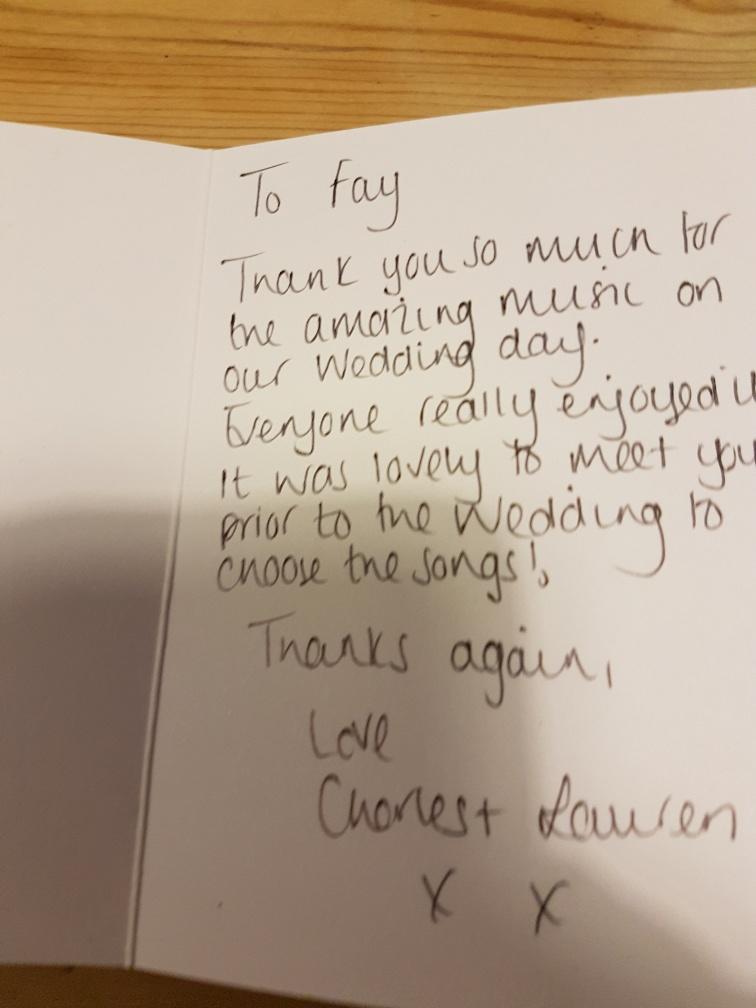 To Fay
Thank you so much for
the amazing music on
our Wedding day.
Everyone really enjoyed it
It was lovely to meet you
prior to the Wedding to
choose the songs!
Thanks again,
Love
Charles + Lauren
x x